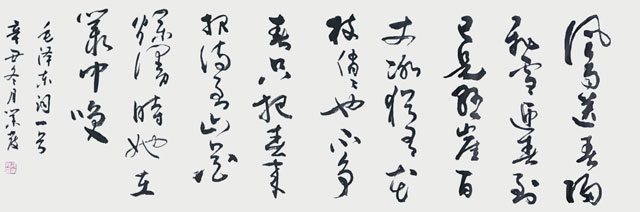 風雨送春歸
飛雪迎春到
已是懸崖百
丈冰猶有花
枝俏々也不争
春只把春来
報待到山花
爛漫時她在
叢中笑
毛泽东词一首
辛丑冬月